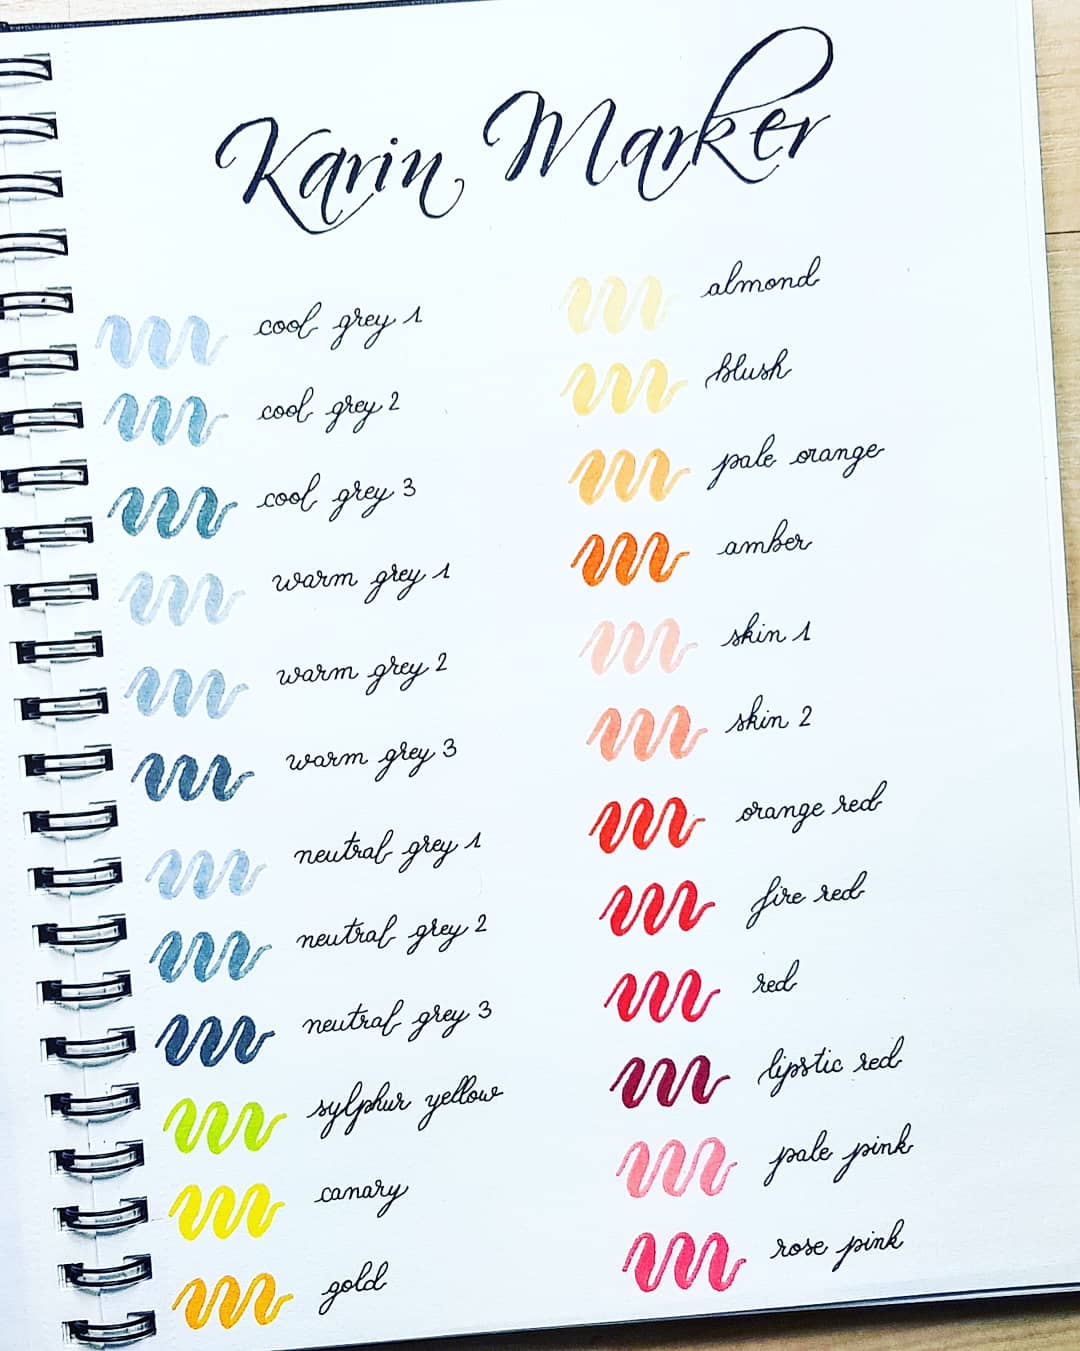 Karin Marker
cool grey 1
cool grey 2
cool grey 3
warm grey 1
warm grey 2
warm grey 3
neutral grey 1
neutral grey 2
neutral grey 3
sylphur yellow
canary
gold
almond
blush
pale orange
amber
skin 1
skin 2
orange red
fire red
red
lipstic red
pale pink
rose pink